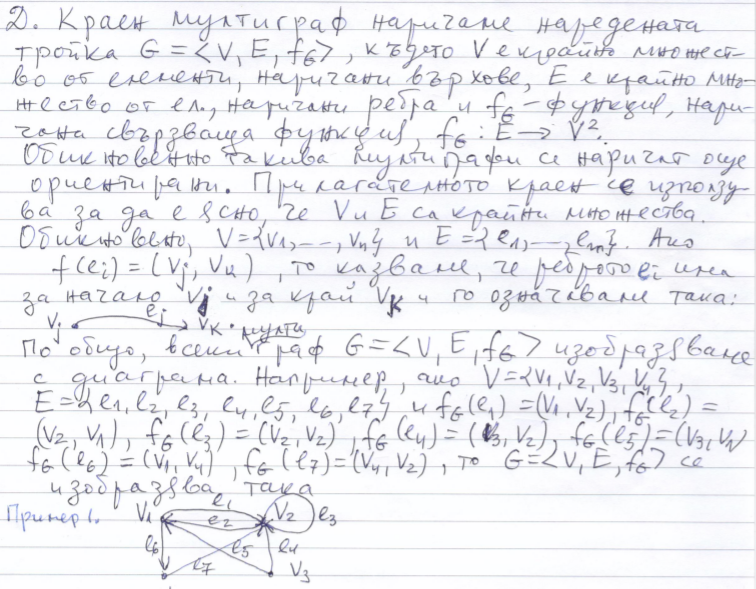 Д. Краен мултиграф наричаме наредената
тройка G = <V, E, f_G>, където V е крайно множест-
во от елементи, наричани върхове, E е крайно мно-
жество от ел., наричани ребра и f_G - функция, нари-
чана свързваща функция, f_G : E → V².
Обикновенно такива мултиграфи се наричат още
ориентирани. Прилагателното краен се използу-
ва за да е ясно, че V и E са крайни множества.
Обикновено, V = {v1, ..., vn} и E = {e1, ..., em}. Ако
f(ei) = (vj, vk), то казваме, че реброто ei има
за начало vj и за край vk и го означаваме така:
vj ej vk. мулти
По общо, всеки граф G = <V, E, f_G> изобразяваме
с диаграма. Например, ако V = {v1, v2, v3, v4},
E = {e1, e2, e3, e4, e5, e6, e7} и f_G(e1) = (v1, v2), f_G(e2) =
(v2, v1), f_G(e3) = (v2, v2), f_G(e4) = (v3, v2), f_G(e5) = (v3, v1)
f_G(e6) = (v1, v4), f_G(e7) = (v4, v2), то G = <V, E, f_G> се
изобразява така
Пример 1. v1 e1 e2 v2 e3
e6 e5 e4
e7 v3